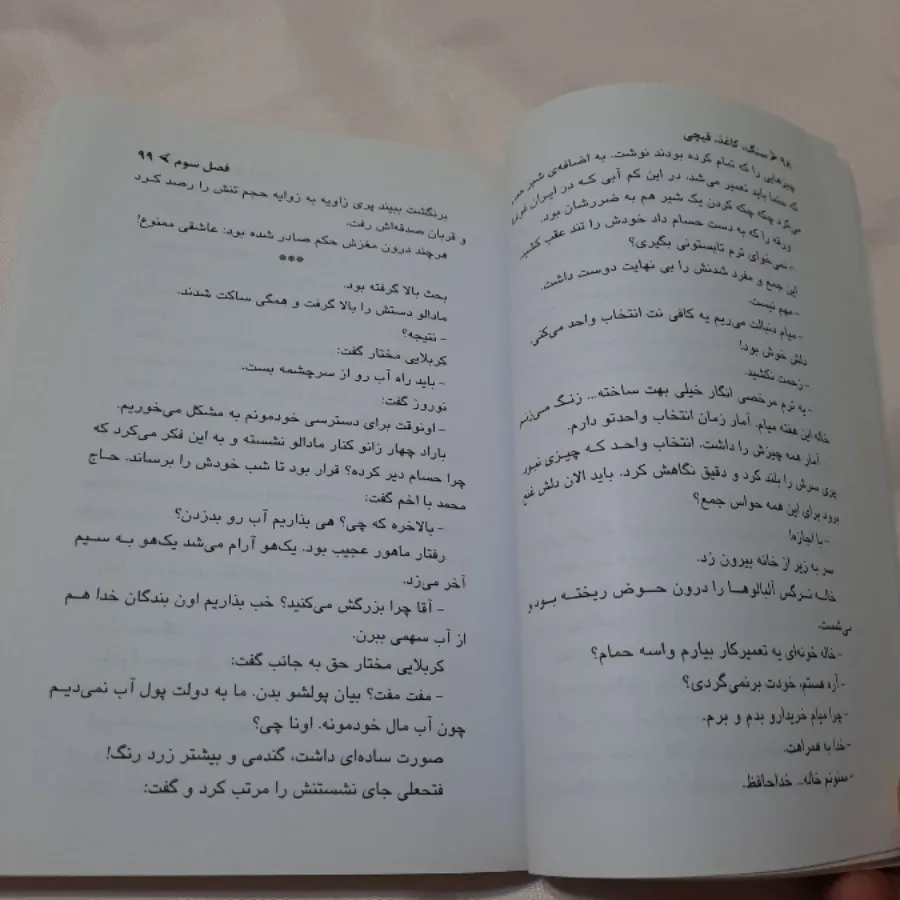 ۹۸ < سنگ، کاغذ، قیچی
چیزهایی را که تمام کرده بودند نوشت. به اضافه‌ی شیر
که حتما باید تعمیر می‌شد، در این کم آبی که در ایران
می‌کرد چکه چکه کردن یک شیر هم به ضررشان بود.
ورقه را که به دست حسام داد خودش را تند عقب کشید.
- نمی‌خوای ترم تابستونی بگیری؟
این جمع و مفرد شدنش را بی نهایت دوست داشت.
- مهم نیست.
- میام دنبالت می‌ریم یه کافی نت انتخاب واحد می‌کنی.
دلش خوش بود!
- زحمت نکشید.
- یه ترم مرخصی انگار خیلی بهت ساخته... زنگ می‌زنم
خاله این هفته میام. آمار زمان انتخاب واحدتو دارم.
آمار همه چیزش را داشت. انتخاب واحد که چیزی نبود
پری سرش را بلند کرد و دقیق نگاهش کرد. باید الان دلش غنج
برود برای این همه حواس جمع؟
- با اجازه!
سر به زیر از خانه بیرون زد.
خاله نرگس آلبالوها را درون حوض ریخته بود و
می‌شست.
- خاله خونه‌ای یه تعمیرکار بیارم واسه حمام؟
- آره هستم، خودت برنمی‌گردی؟
- چرا میام خریدارو بدم و برم.
- خدا به همراهت.
- ممنونم خاله... خداحافظ.
فصل سوم > ۹۹
برنگشت ببیند پری زاویه به زاویه حجم تنش را رصد کرد
و قربان صدقه‌اش رفت.
هرچند درون مغزش حکم صادر شده بود: عاشقی ممنوع!
***
بحث بالا گرفته بود.
مادالو دستش را بالا گرفت و همگی ساکت شدند.
- نتیجه؟
کربلایی مختار گفت:
- باید راه آب رو از سرچشمه بست.
نوروز گفت:
- اونوقت برای دسترسی خودمونم به مشکل می‌خوریم.
باراد چهار زانو کنار مادالو نشسته و به این فکر می‌کرد که
چرا حسام دیر کرده؟ قرار بود تا شب خودش را برساند. حاج
محمد با اخم گفت:
- بالاخره که چی؟ هی بذاریم آب رو بدزدن؟
رفتار ماهور عجیب بود. یک‌هو آرام می‌شد یک‌هو به سیم
آخر می‌زد.
- آقا چرا بزرگش می‌کنید؟ خب بذاریم اون بندگان خدا هم
از آب سهمی ببرن.
کربلایی مختار حق به جانب گفت:
- مفت مفت؟ بیان پولشو بدن. ما به دولت پول آب نمی‌دیم
چون آب مال خودمونه. اونا چی؟
صورت ساده‌ای داشت، گندمی و بیشتر زرد رنگ!
فتحعلی جای نشستنش را مرتب کرد و گفت: